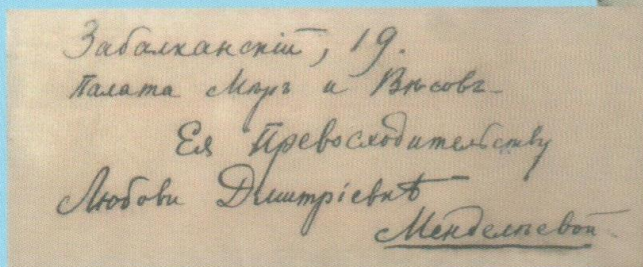 Забалканскій, 19.
Палата Мѣръ и Вѣсовъ
Ея Превосходительству
Любови Дмитріевнѣ
Менделѣевой